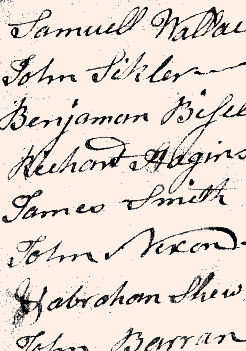 Samuell Wallac
John Sikler
Benjaman Bisel
Richard Hagins
James Smith
John Nixon
Habraham Shew
John Barran